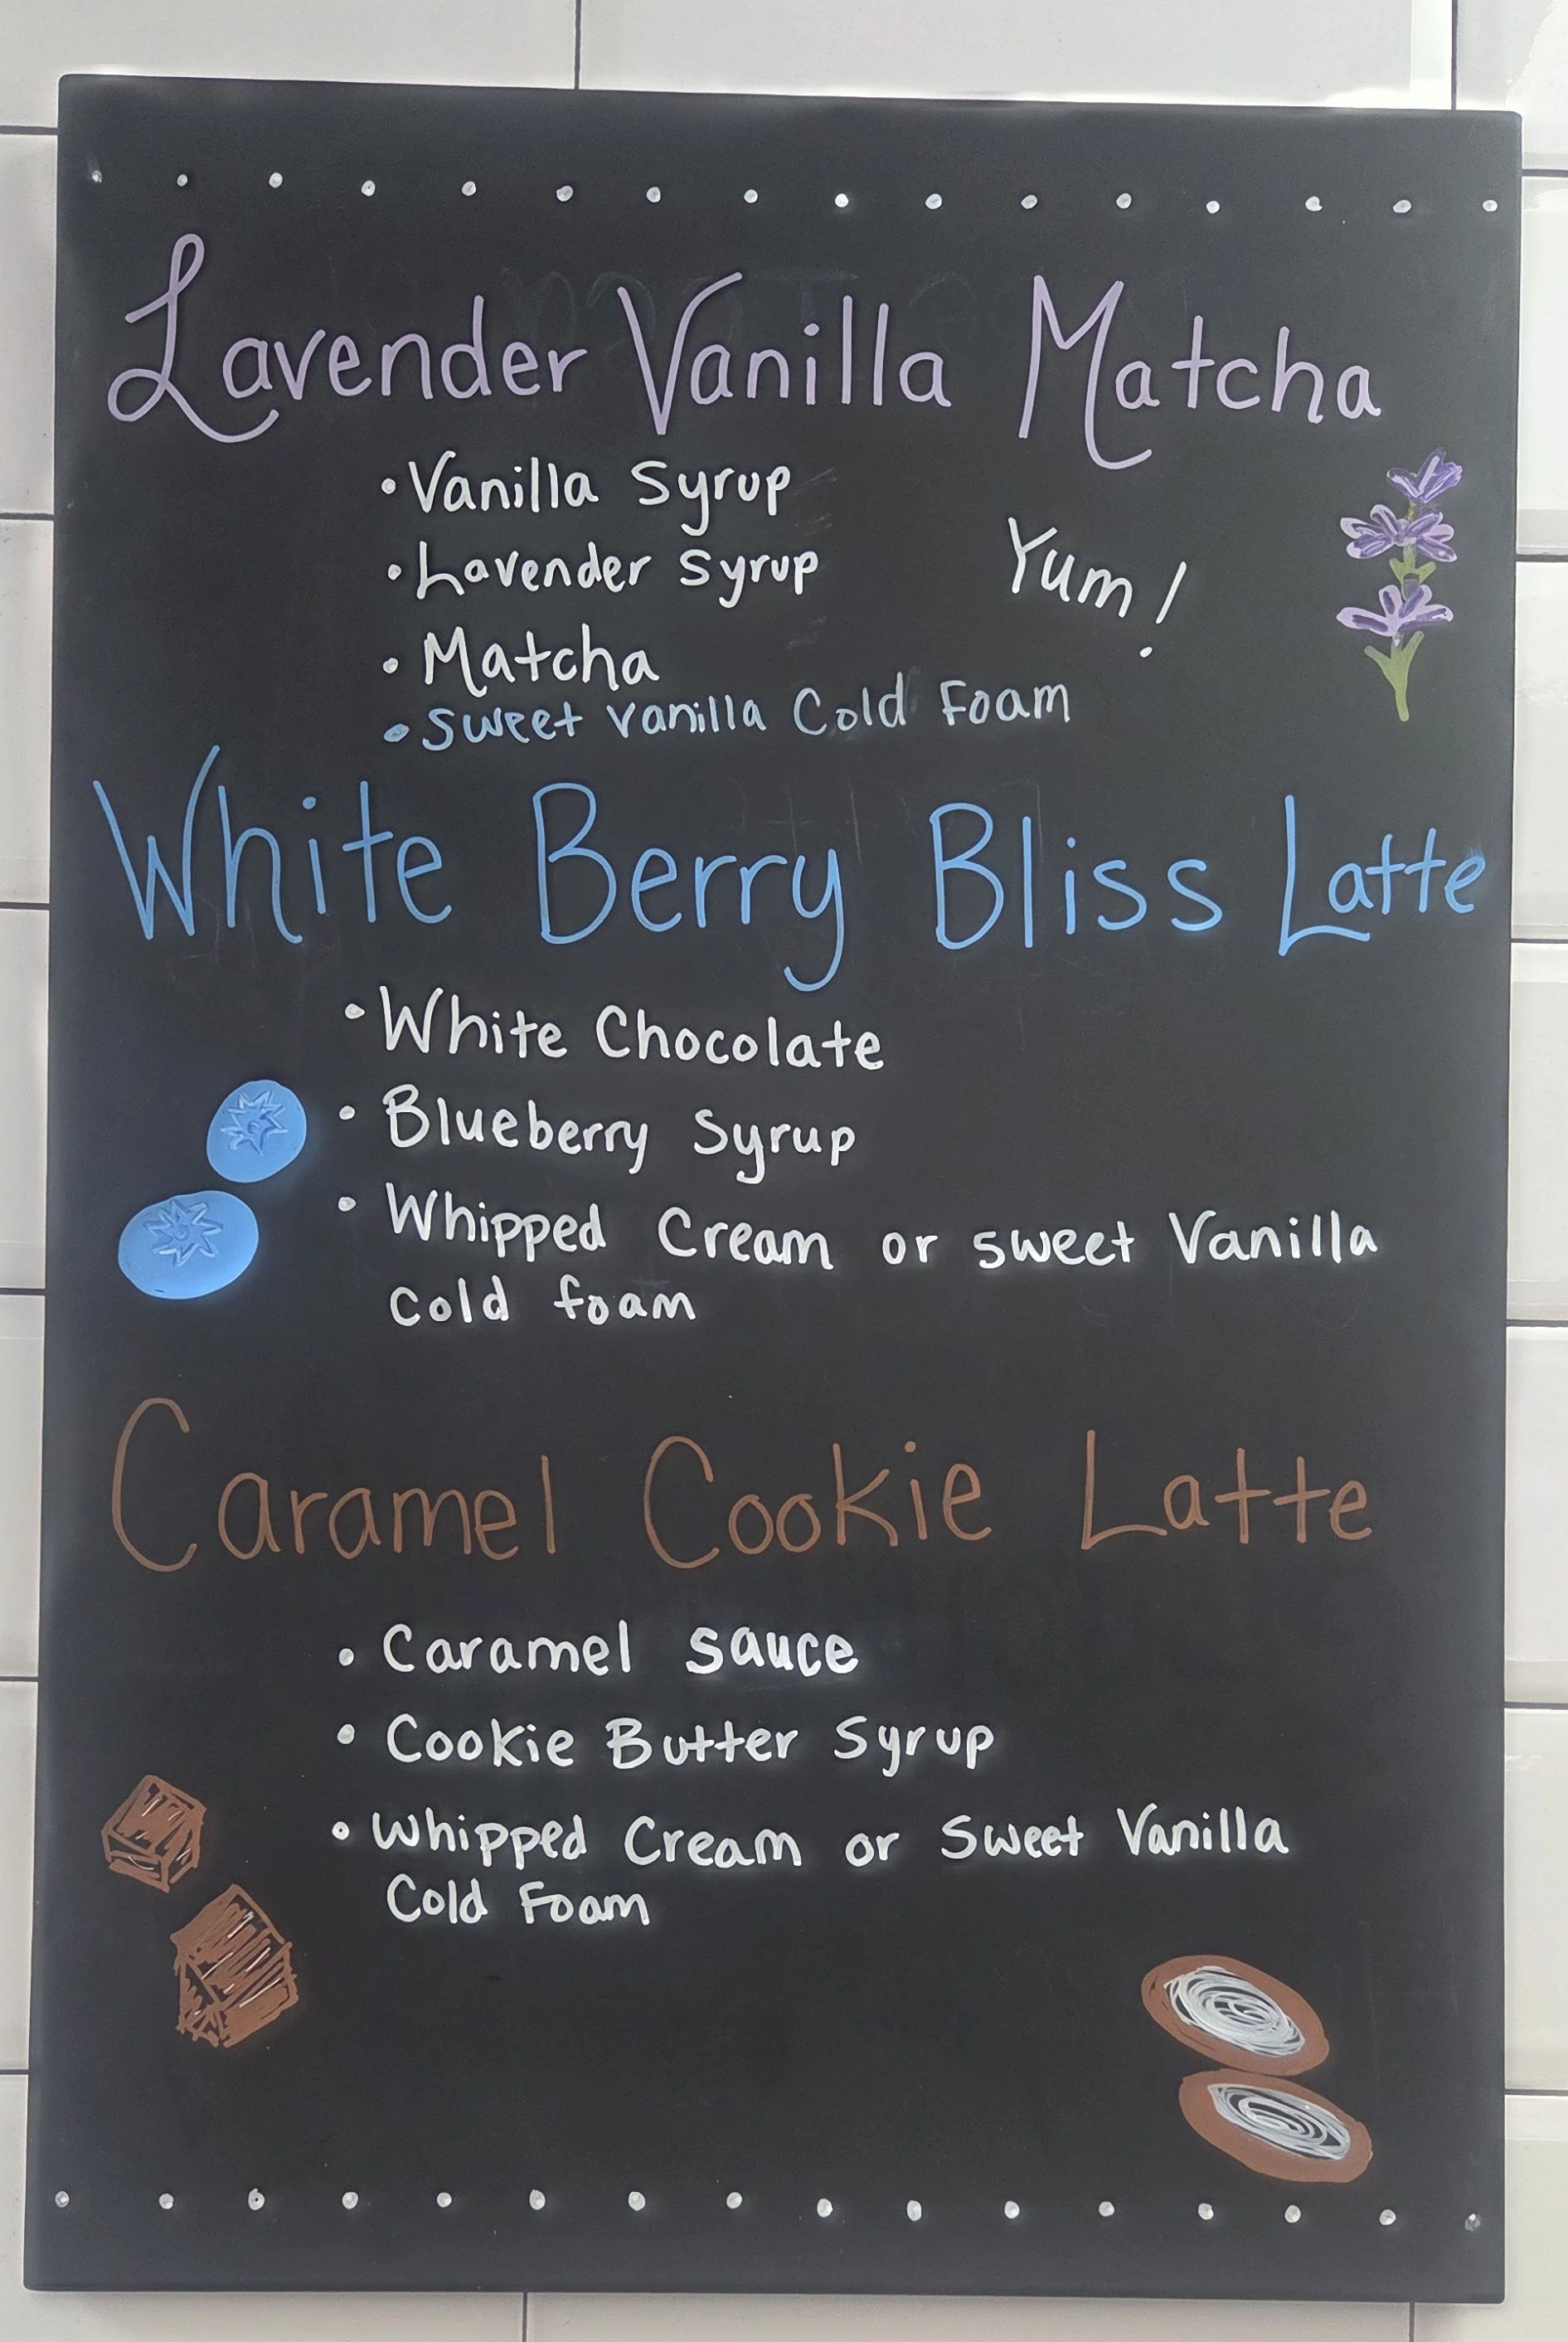 Lavender Vanilla Matcha
• Vanilla Syrup
• Lavender Syrup
Yum!
• Matcha
• Sweet Vanilla Cold Foam
White Berry Bliss Latte
• White Chocolate
• Blueberry Syrup
• Whipped Cream or sweet Vanilla
Cold foam
Caramel Cookie Latte
• Caramel sauce
• Cookie Butter Syrup
• Whipped Cream or Sweet Vanilla
Cold Foam